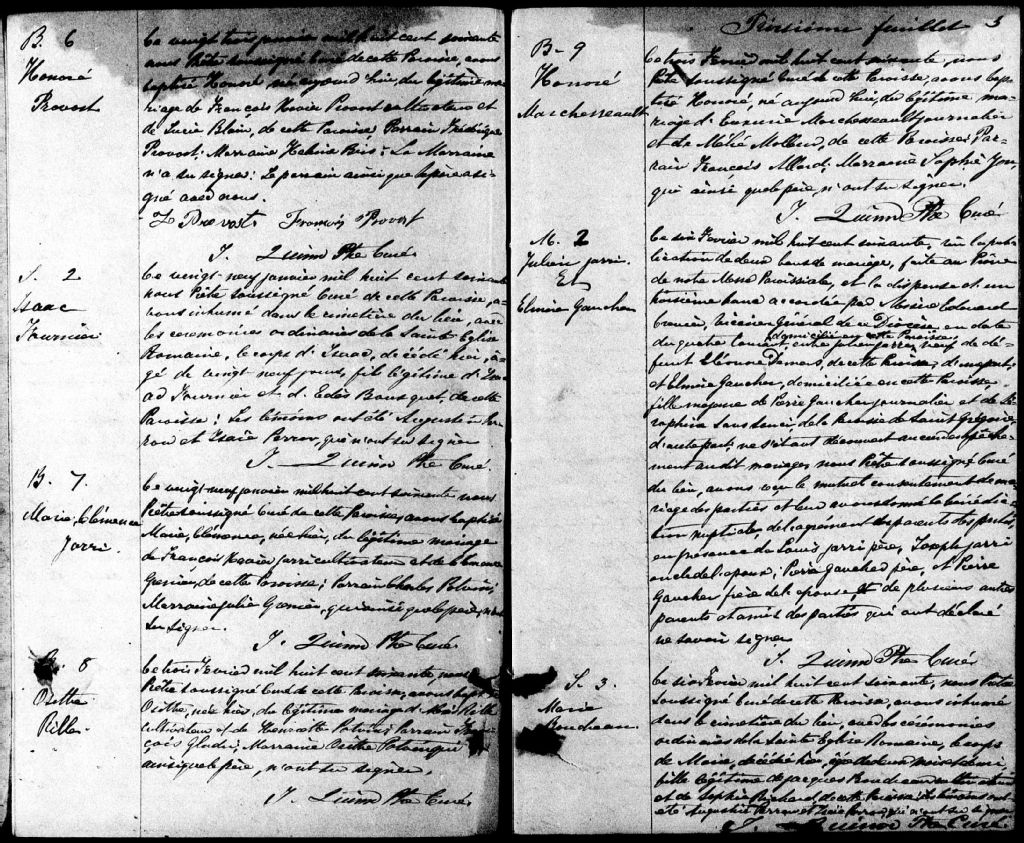 B. 6
Honoré
Provost
Le vingt trois janvier mil huit cent soixante
nous Prêtre soussigné Curé de cette Paroisse, avons
baptisé Honoré né aujourd'hui du légitime ma-
riage de François Xavier Provost cultivateur et
de Lucie Blain, de cette Paroisse Parrain Frédéric
Provost; Marraine La Marraine
n'a su signer: Le parrain ainsi que le père a si-
gné avec nous.
F Provost François Provost
J. Quinn Ptre Curé
S. 2
Isaac
Fournier
Le vingt-neuf janvier mil huit cent soixante
nous Prêtre soussigné Curé de cette Paroisse, a-
vons inhumé dans le cimetière du lieu, avec
les cérémonies ordinaires de la Sainte Eglise
Romaine, le corps d'Isaac, décédé hier, â-
gé de vingt neuf jours, fils légitime d'
Fournier et d' Bousquet, de cette
Paroisse: Les témoins ont été Augustin Per-
ron et Isaïe Perron, qui n'ont su signer
J. Quinn Ptre Curé.
B. 7.
Marie, Clémence
Jarri.
Le vingt-neuf janvier mil huit cent soixante nous
Prêtre soussigné Curé de cette Paroisse, avons baptisé
Marie, Clémence, née hier, du légitime mariage
de François Xavier Jarri cultivateur et de
de cette Paroisse; Parrain Charles Potvin;
Marraine Julie qui ainsi que le père, n'ont
su signer.
J. Quinn Ptre Curé
B. 8
Osithe
Le trois Février mil huit cent soixante nous
Prêtre soussigné Curé de cette Paroisse, avons baptisé
Osithe, née hier, du légitime mariage d'
cultivateur et de Henriette Potvin; Parrain Fran-
çois Marraine Osithe
ainsi que le père, n'ont su signer.
J. Quinn Ptre Curé
Troisième feuillet 3
B- 9
Honoré
Marchesseault
Le trois Février mil huit cent soixante, nous
Prêtre soussigné Curé de cette Paroisse, avons bap-
tisé Honoré, né aujourd'hui, du légitime ma-
riage d' Marchesseault journalier
et de Mélie Molleur, de cette Paroisse: Par-
rain François Allard; Marraine Sophie
qui ainsi que le père, n'ont su signer.
J. Quinn Ptre Curé
M. 2
Julien Jarri.
Et
Elmire Gaucher
Le six Février mil huit cent soixante, vu la pub-
lication de deux bans de mariage, faite au Prône
de notre Messe Paroissiale, et la dispense d'un
troisième banc accordée par Messire Edouard
Vicaire Général de ce Diocèse, en date
du quatre courant entre Julien Jarri, veuf de dé-
domicilié en cette Paroisse
funt Léonne Demars, de cette Paroisse, d'une part;
et Elmire Gaucher, domiciliée en cette Paroisse,
fille majeure de Pierre Gaucher journalier et de
Sanssouci, de la Paroisse de Saint Grégoire,
d'autre part; ne s'étant découvert aucun empêche-
ment audit mariage, nous Prêtre soussigné Curé
du lieu, avons reçu le mutuel consentement de ma-
riage des parties et leur avons donné la bénédic-
tion nuptiale, de l'agrément des parents des parties,
en présence de Louis Jarri père, Joseph Jarri
oncle de l'époux; Pierre Gaucher père, et Pierre
Gaucher frère de l'épouse et de plusieurs autres
parents et amis des parties qui ont déclaré
ne savoir signer
J. Quinn Ptre Curé
S. 3.
Marie
Boudreau
Le six Février mil huit cent soixante, nous Prêtre
soussigné Curé de cette Paroisse, avons inhumé
dans le cimetière du lieu, avec les cérémonies
ordinaires de la Sainte Eglise Romaine, le corps
de Marie, décédée hier, âgée de un mois et demi
fille légitime de Jacques Boudreau cultivateur
et de Sophie Richard de cette Paroisse: Les témoins ont
été Augustin Perron et Isaïe Perron, qui n'ont su signer
J. Quinn Ptre Curé